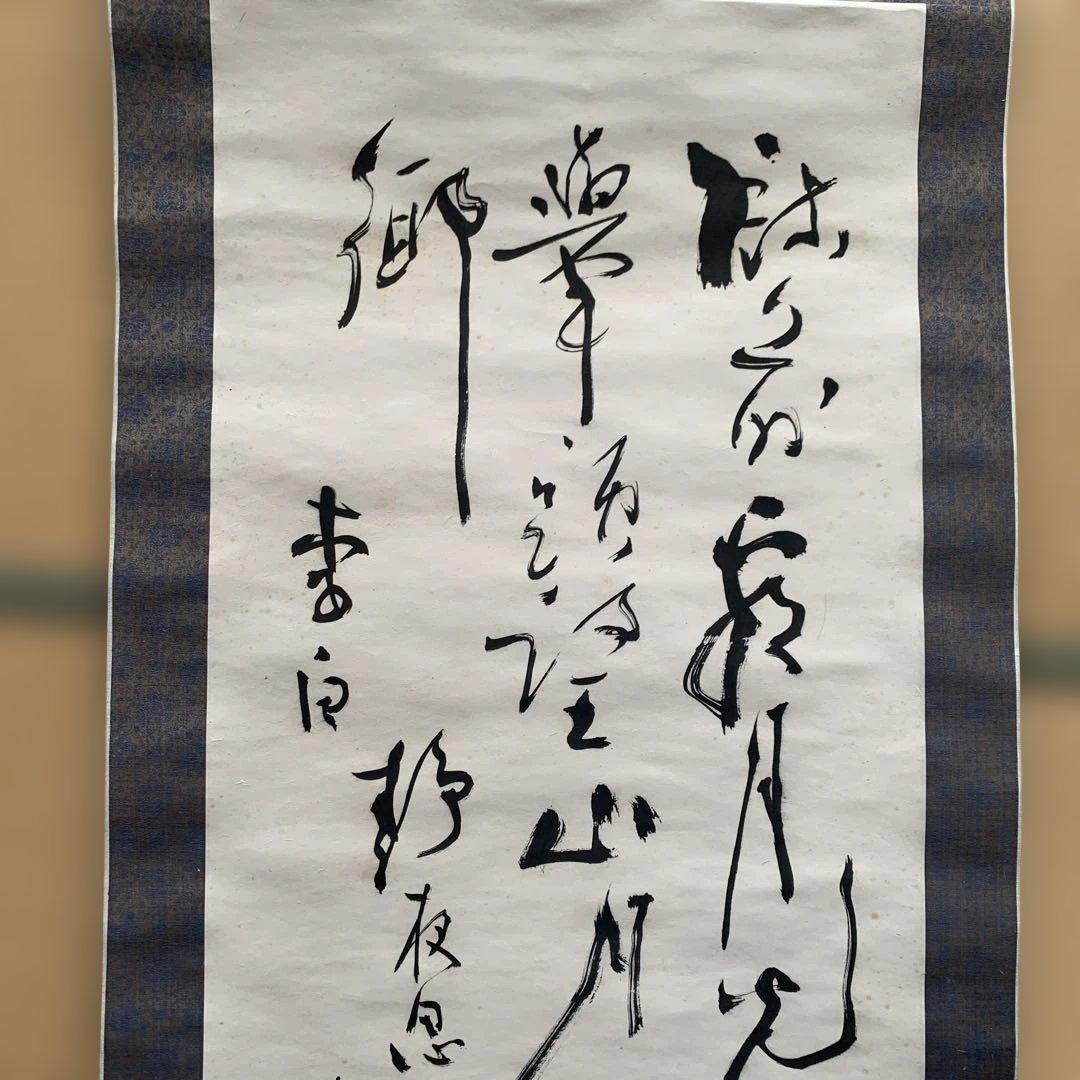 牀前看月光
擧頭望山月
鄉
李白
静夜思